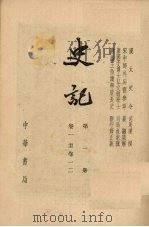 漢太史令司馬遷撰
宋中郎外兵曹參軍裴駰集解
唐國子博士弘文館學士司馬貞索隱
唐諸王侍讀率府長史張守節正義
史記
第一冊
卷一至卷一二
中華書局